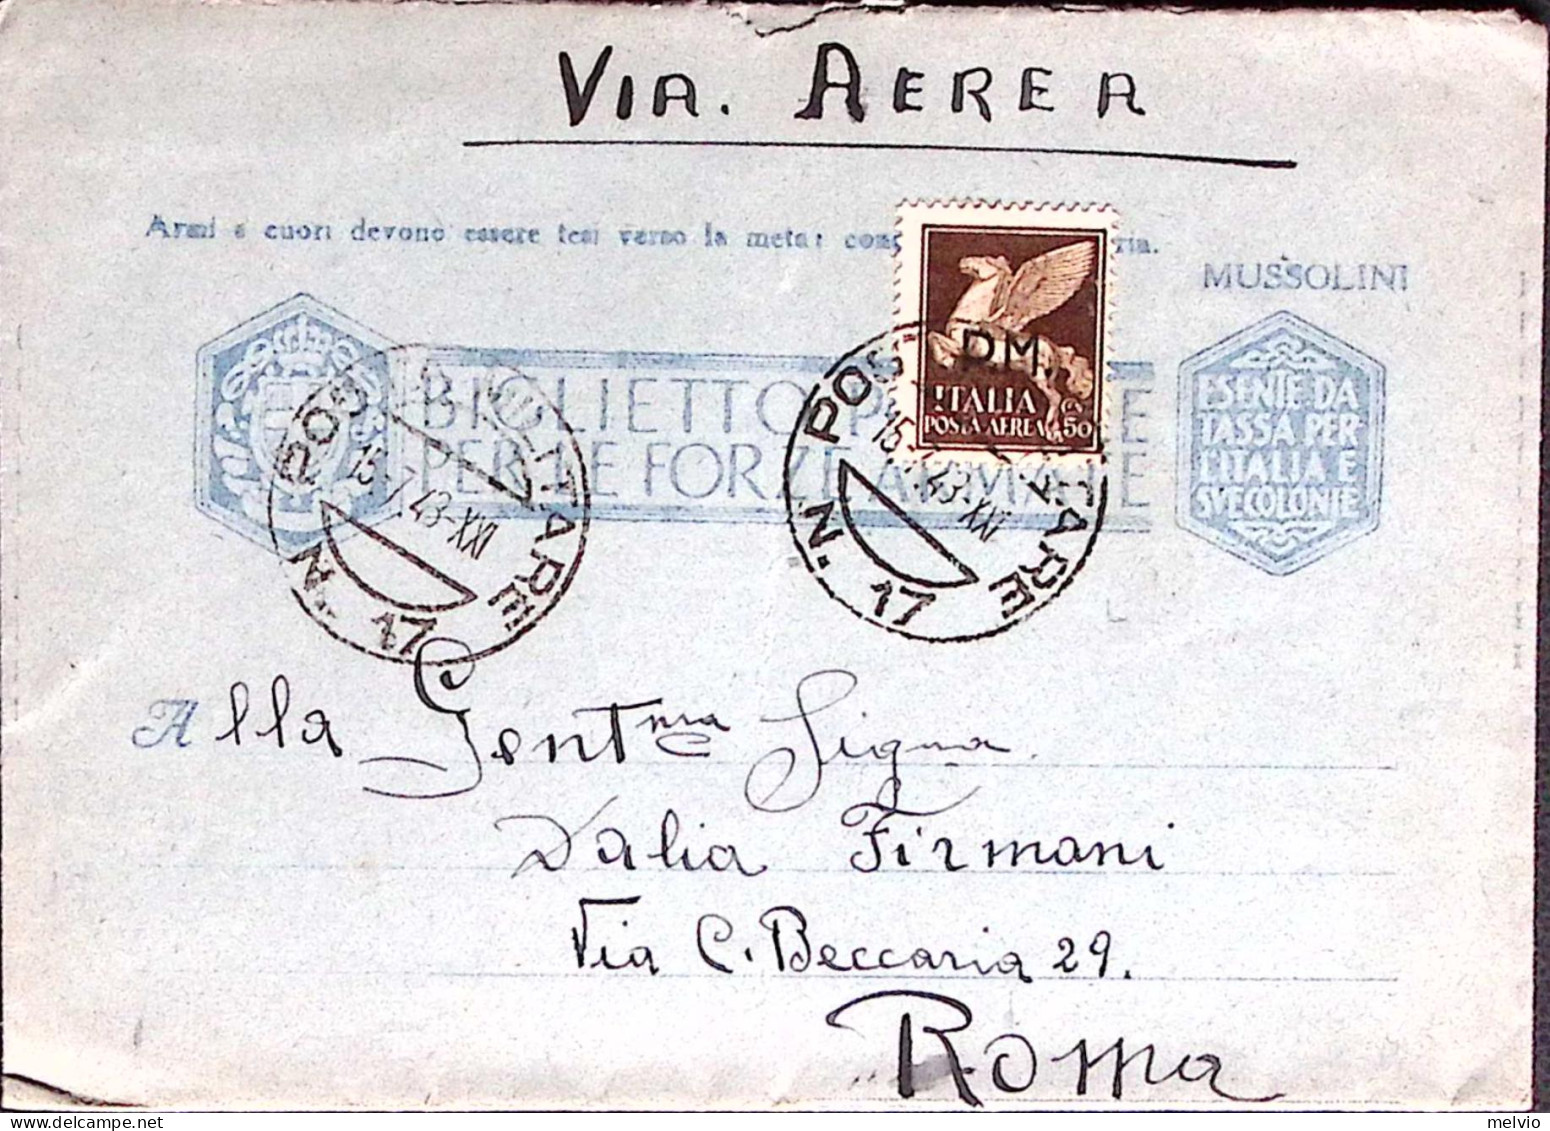 VIA. AEREA
Armi e cuori devono essere tesi verso la meta:
MUSSOLINI
BIGLIETTO
PER LE FORZE
ESENTE DA
TASSA PER
L'ITALIA E
SVE COLONIE
P.M.
ITALIA
POSTA AEREA
CENT 50
POSTA MILITARE
15-7.43-XXI
N. 17
POSTA MILITARE
15-7.43-XXI
N. 17
Alla Gentma Signa
Dalia Firmani
Via C. Beccaria 29.
Roma
melvio